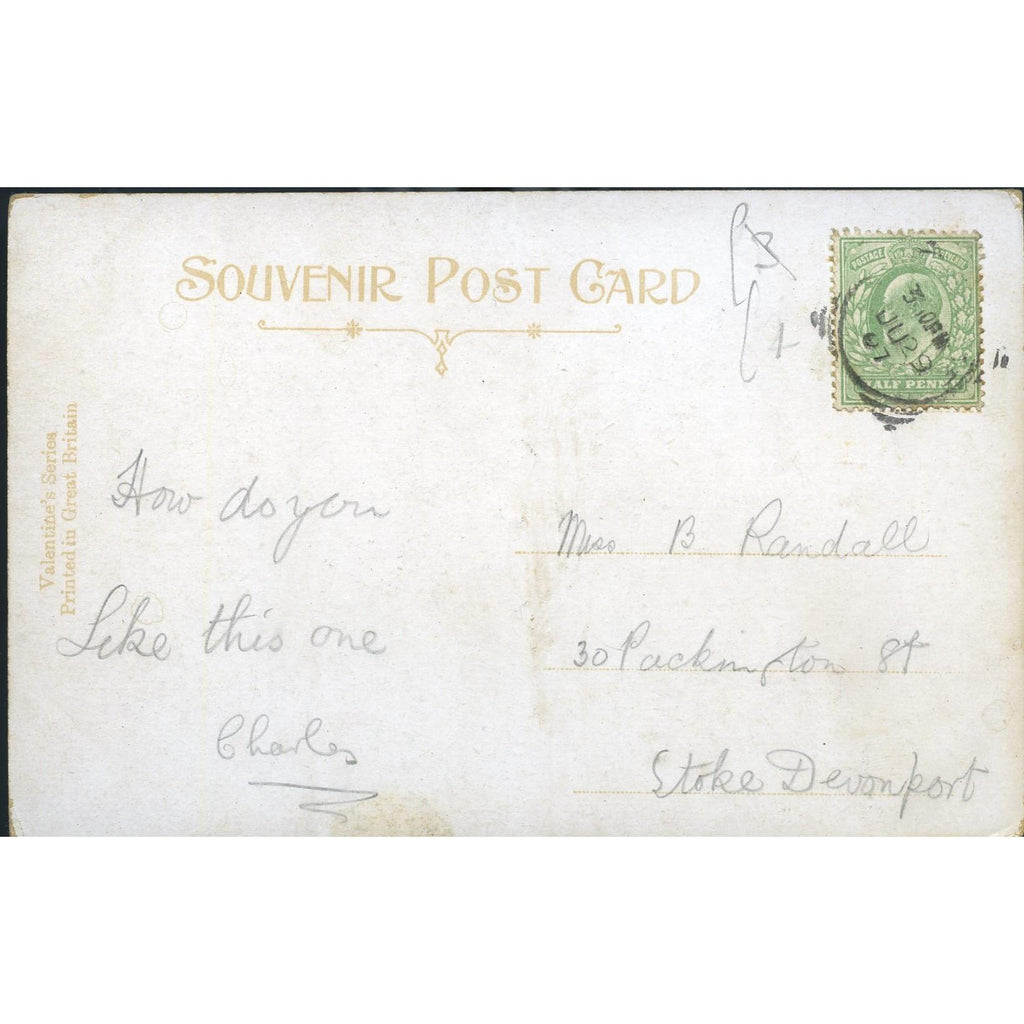 SOUVENIR POST CARD
Valentine's Series
Printed in Great Britain
How do you
Like this one
Charles
POSTAGE
HALF PENNY
3 10 PM
JU 29
07
Miss B Randall
30 Packington St
Stoke Devonport